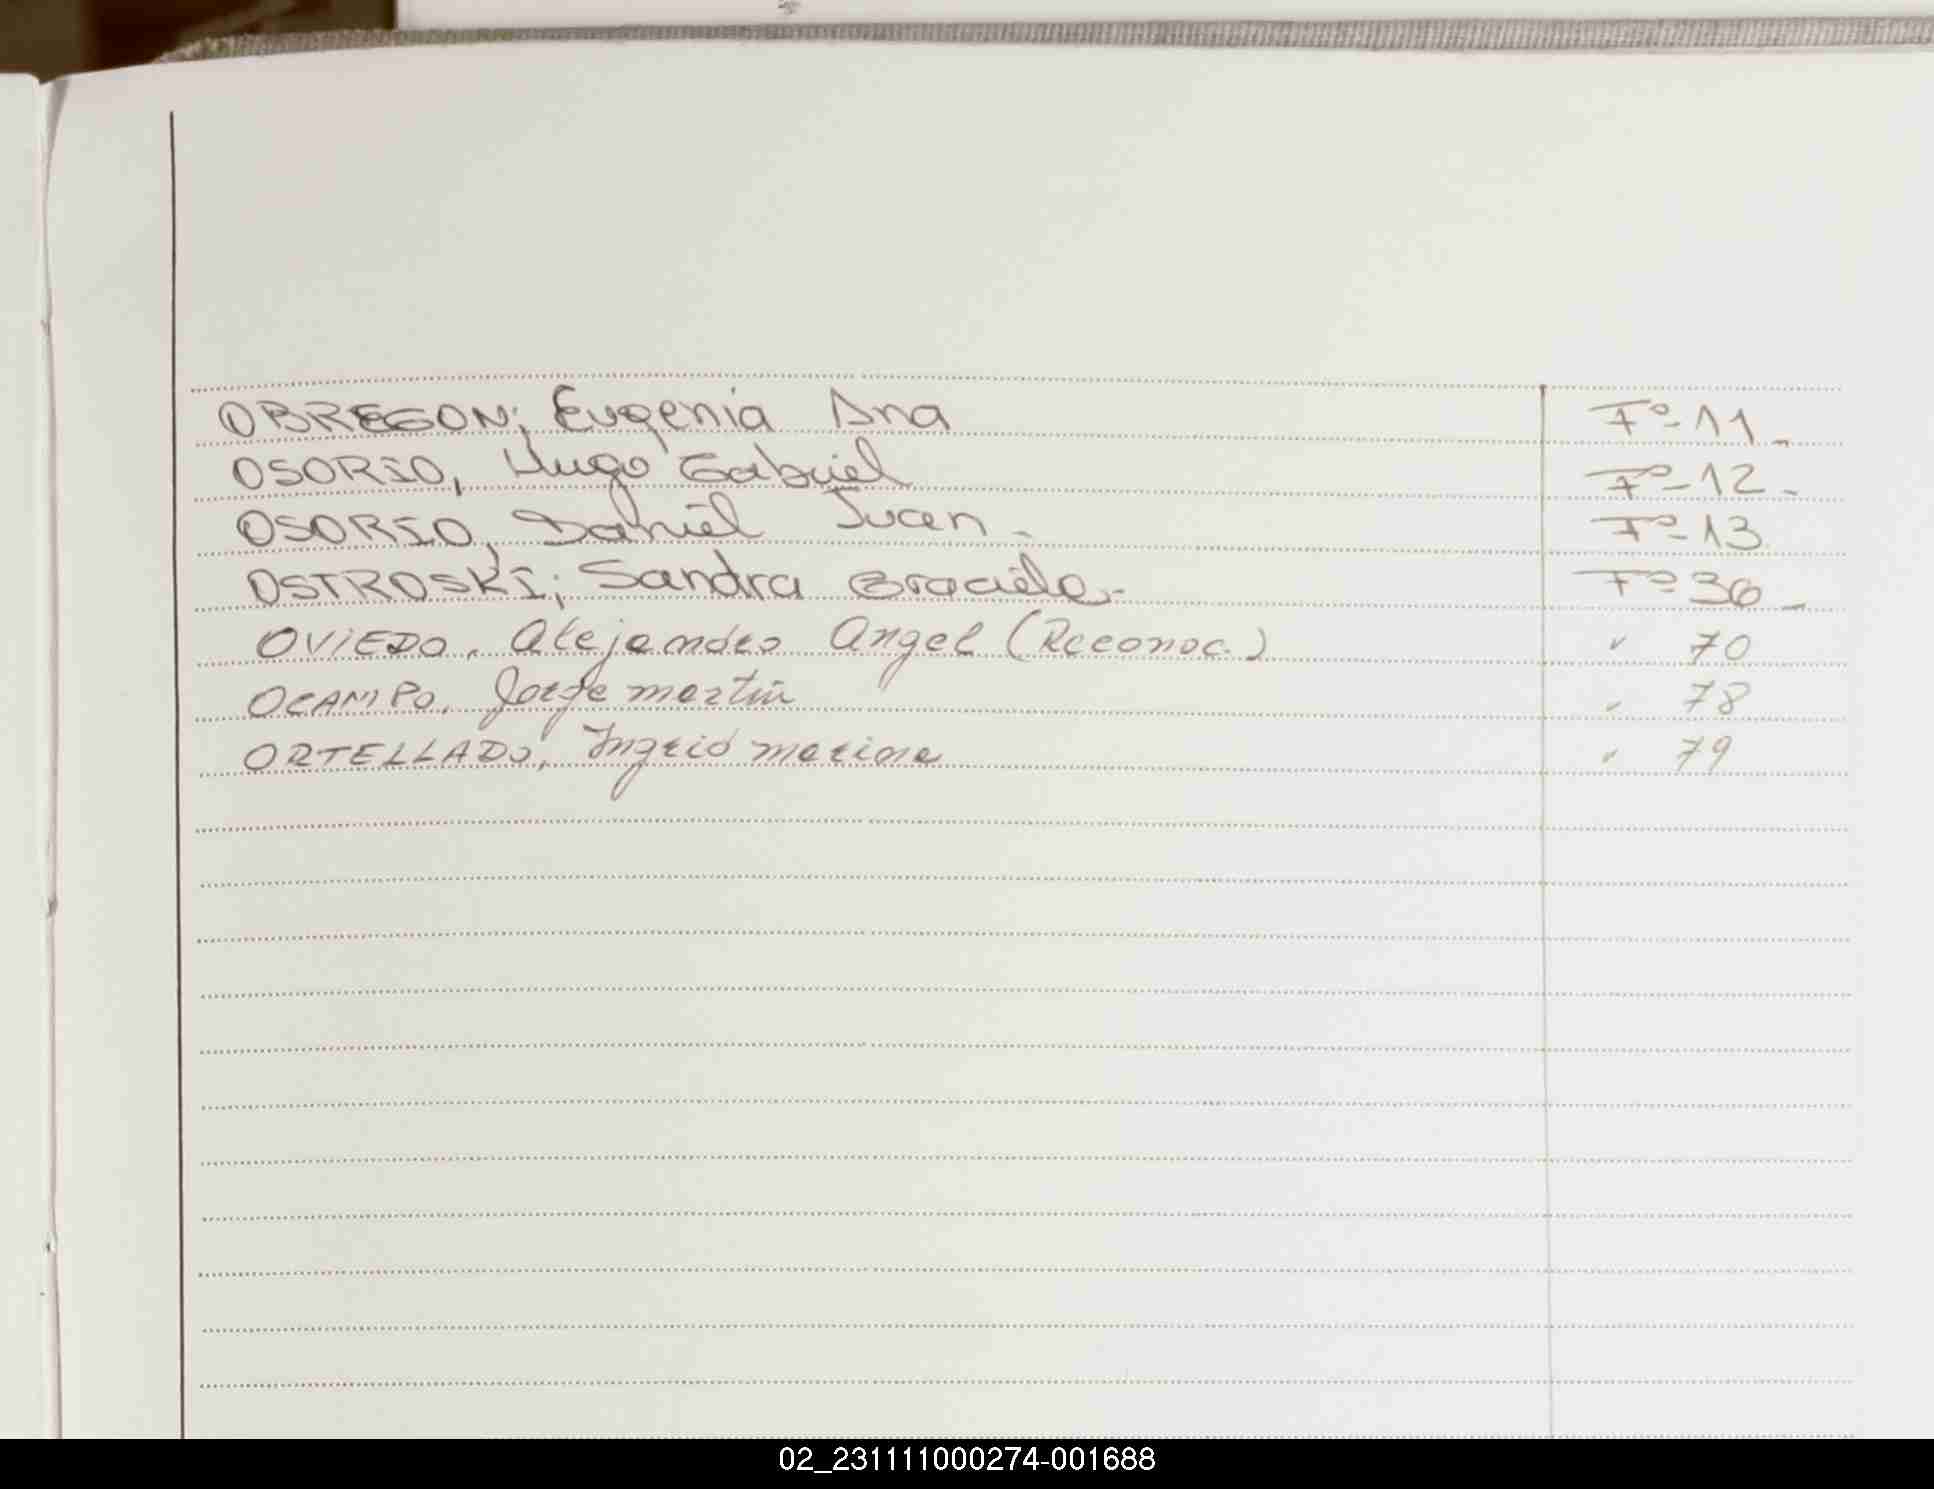 OBREGON, Eugenia Ana Fº-11_
OSORIO, Hugo Gabriel Fº-12-
OSORIO, Daniel Juan- Fº-13
OSTROSKI; Sandra Graciela.- Fº 36_
OVIEDO, Alejandro Angel (Reconoc.) " 70
OCAMPO, Jorge martin " 78
ORTELLADO, Ingrid marina " 79
02_231111000274-001688